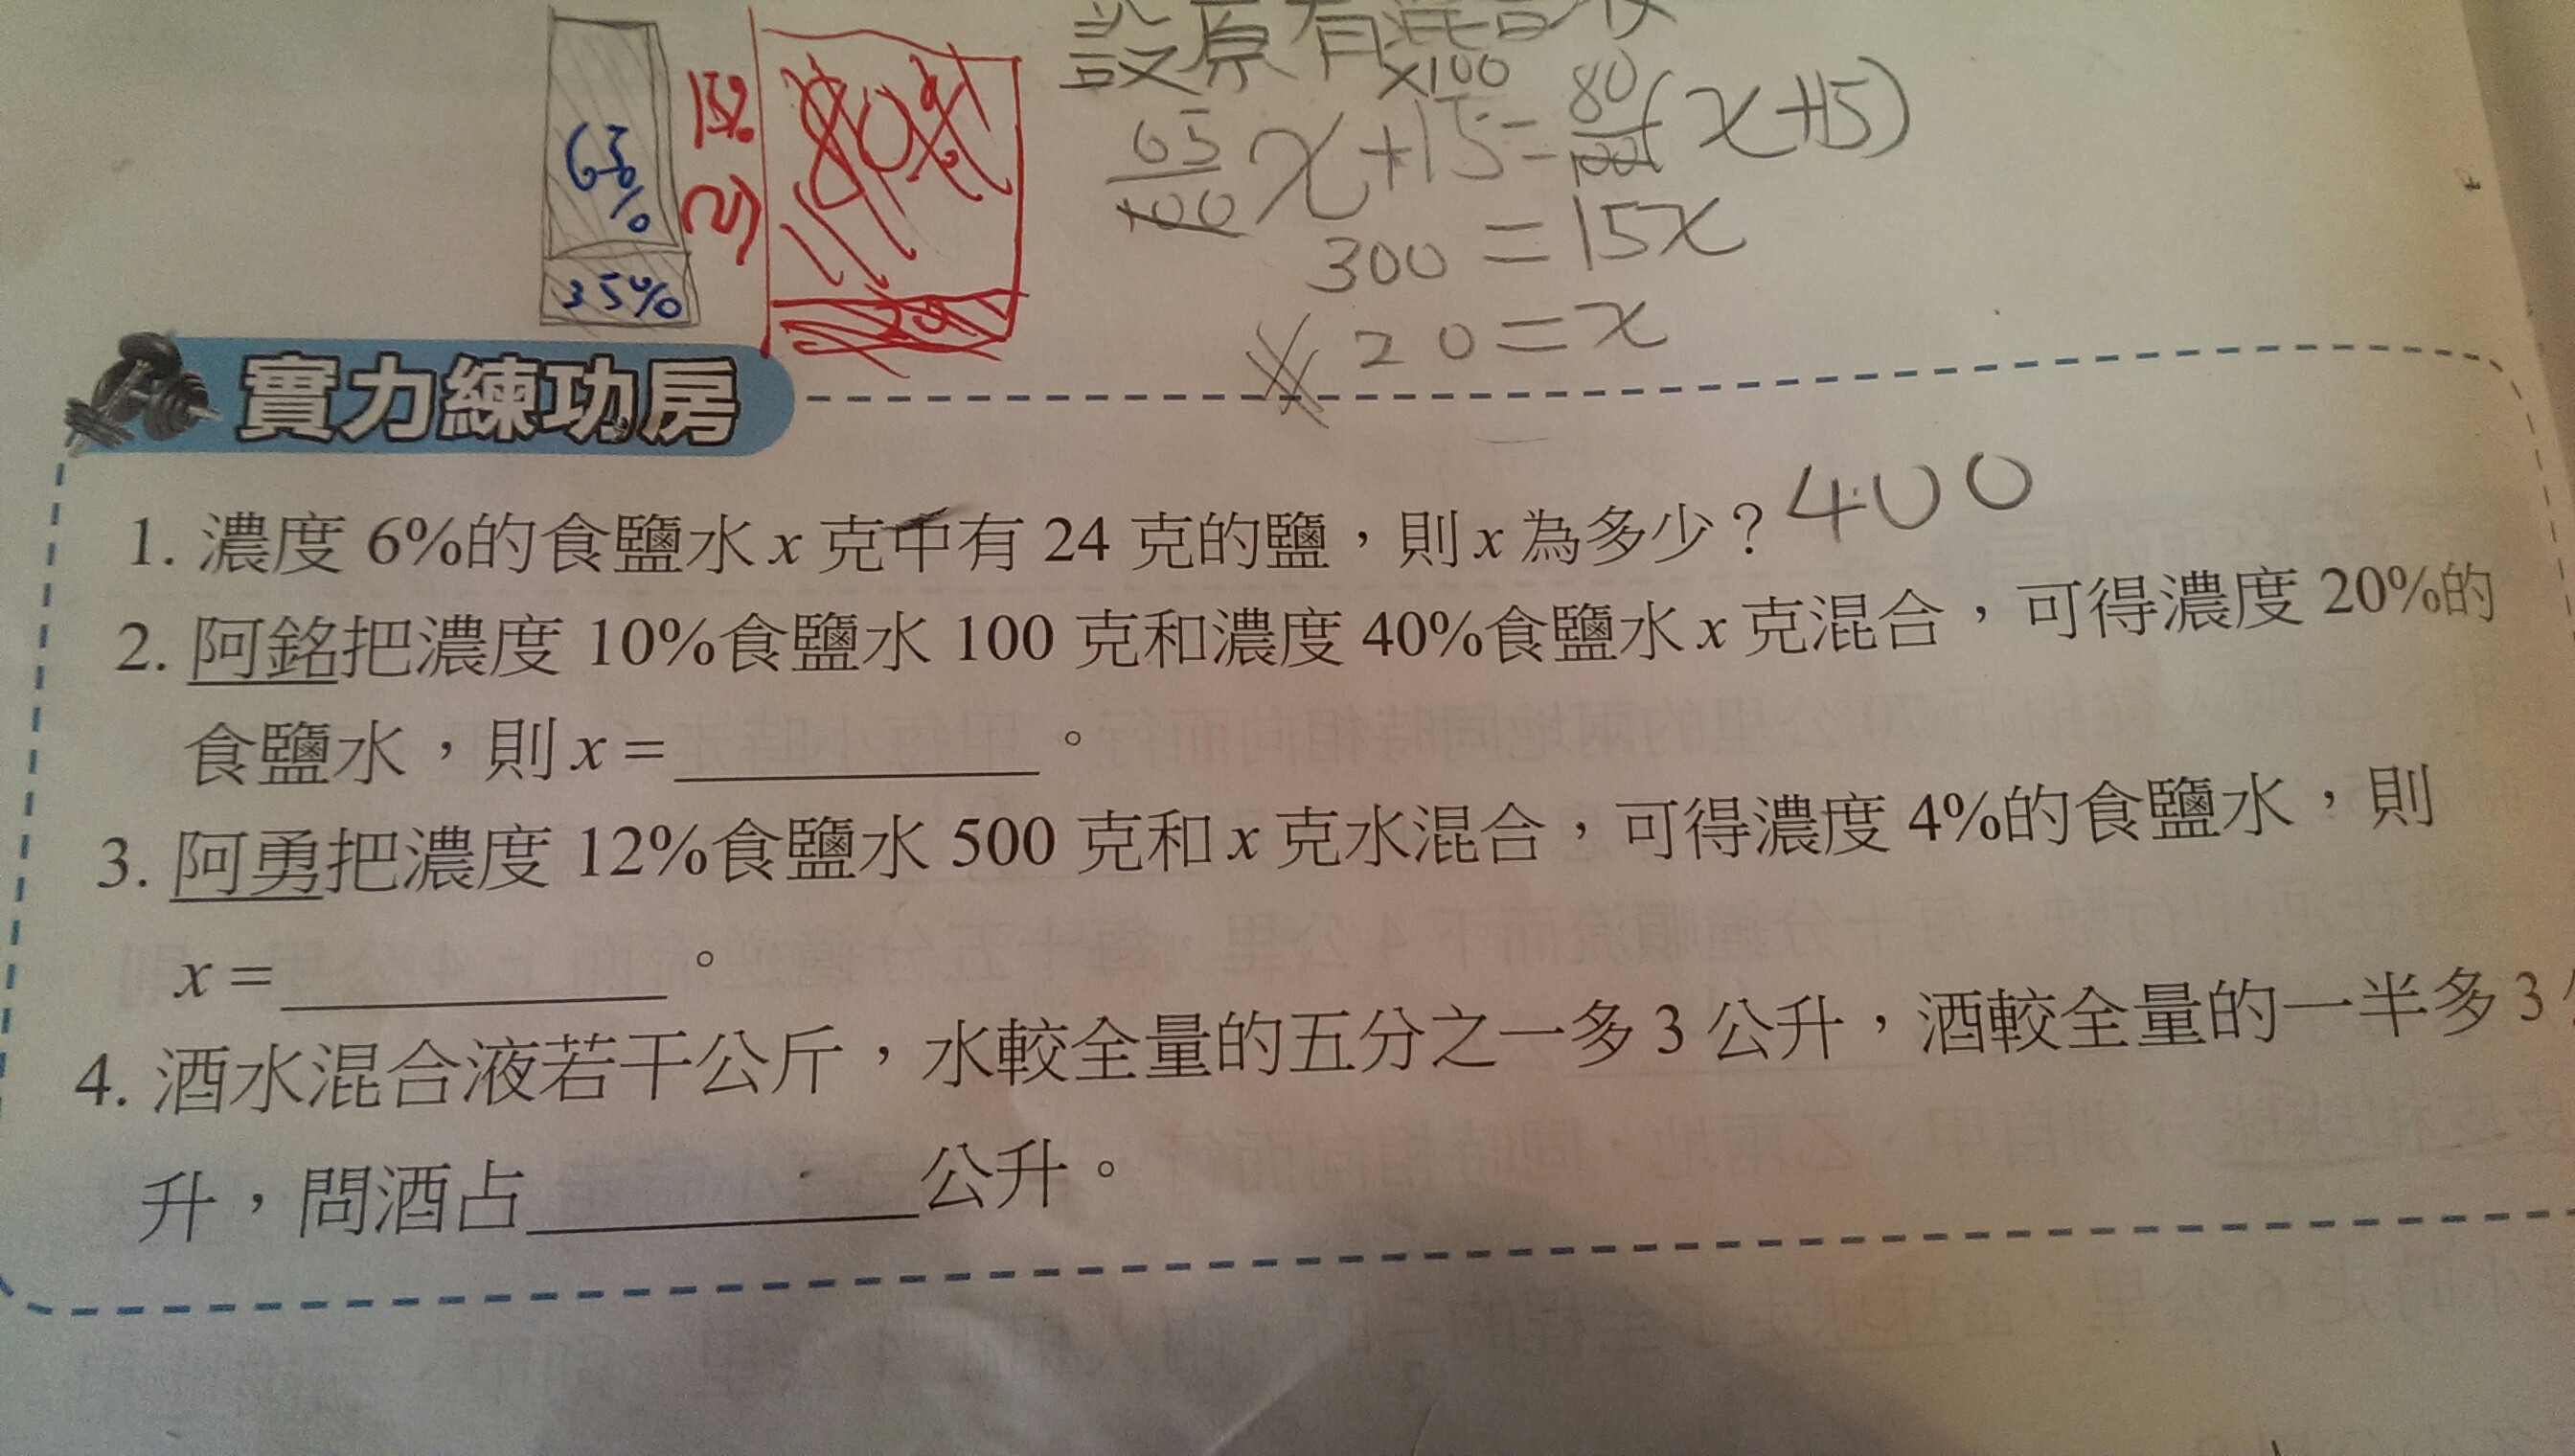 設原有混合液
65% 15% ×100
35%
65/100 x+15=80/100(x+15)
300=15x
20=x
實力練功房
1. 濃度 6%的食鹽水 x 克中有 24 克的鹽，則 x 為多少？400
2. 阿銘把濃度 10%食鹽水 100 克和濃度 40%食鹽水 x 克混合，可得濃度 20%的
食鹽水，則 x = ＿＿＿＿＿。
3. 阿勇把濃度 12%食鹽水 500 克和 x 克水混合，可得濃度 4%的食鹽水，則
x = ＿＿＿＿＿。
4. 酒水混合液若干公斤，水較全量的五分之一多 3 公升，酒較全量的一半多 3
升，問酒占＿＿＿＿＿公升。